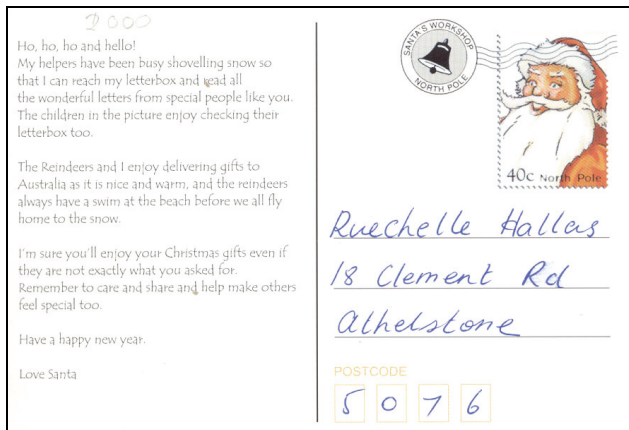 2000
Ho, ho, ho and hello!
My helpers have been busy shovelling snow so
that I can reach my letterbox and read all
the wonderful letters from special people like you.
The children in the picture enjoy checking their
letterbox too.
The Reindeers and I enjoy delivering gifts to
Australia as it is nice and warm, and the reindeers
always have a swim at the beach before we all fly
home to the snow.
I'm sure you'll enjoy your Christmas gifts even if
they are not exactly what you asked for.
Remember to care and share and help make others
feel special too.
Have a happy new year.
Love Santa
SANTA'S WORKSHOP
NORTH POLE
40c North Pole
Ruechelle Hallas
18 Clement Rd
Athelstone
POSTCODE
5076